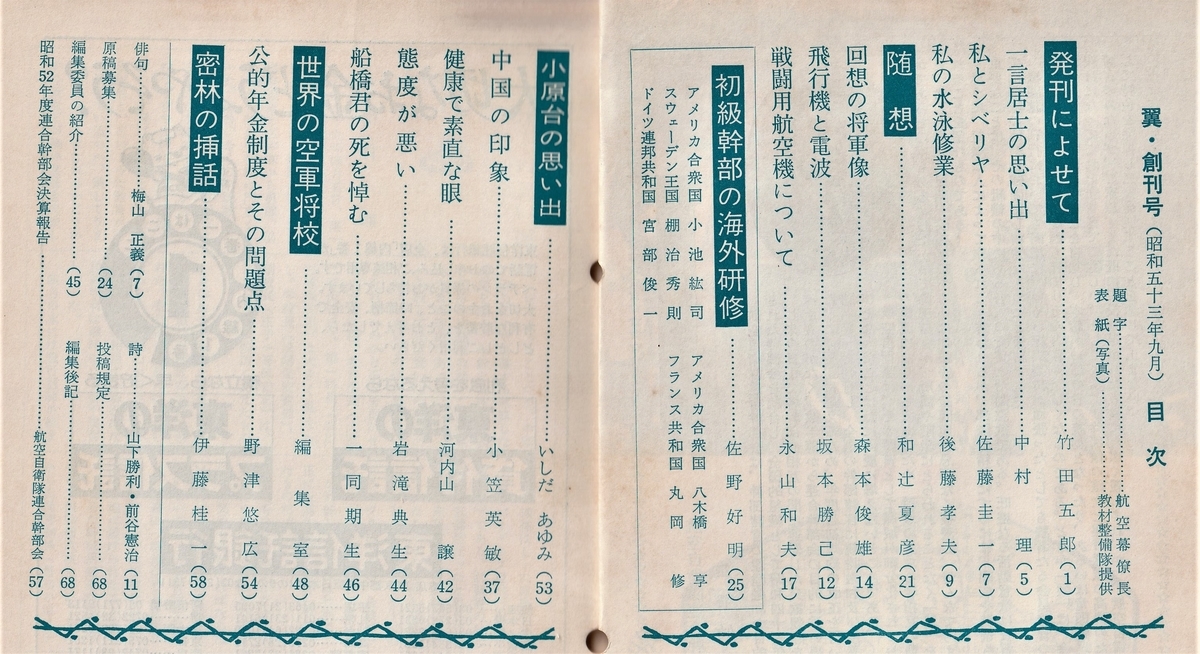 翼・創刊号（昭和五十三年九月）　目　次
題　字……航空幕僚長
表　紙（写真）……教材整備隊提供
発刊によせて……竹田五郎（1）
一言居士の思い出……中村　理（5）
私とシベリヤ……佐藤圭一（7）
私の水泳修業……後藤孝夫（9）
随　想……和辻夏彦（21）
回想の将軍像……森本俊雄（14）
飛行機と電波……坂本勝己（12）
戦闘用航空機について……永山和夫（17）
初級幹部の海外研修……佐野好明（25）
アメリカ合衆国　小池紘司　アメリカ合衆国　八木橋　享
スウェーデン王国　棚治秀則　フランス共和国　丸岡　修
ドイツ連邦共和国　宮部俊一
小原台の思い出……いしだ　あゆみ（53）
中国の印象……小笠英敏（37）
健康で素直な眼……河内山　譲（42）
態度が悪い……岩滝典生（44）
船橋君の死を悼む……一同期生（46）
世界の空軍将校……編集室（48）
公的年金制度とその問題点……野津悠広（54）
密林の挿話……伊藤桂一（58）
俳句……梅山　正義（7）　詩……山下勝利・前谷憲治（11）
原稿募集……（24）　投稿規定……（68）
編集委員の紹介……（45）　編集後記……（68）
昭和52年度連合幹部会決算報告……航空自衛隊連合幹部会（57）